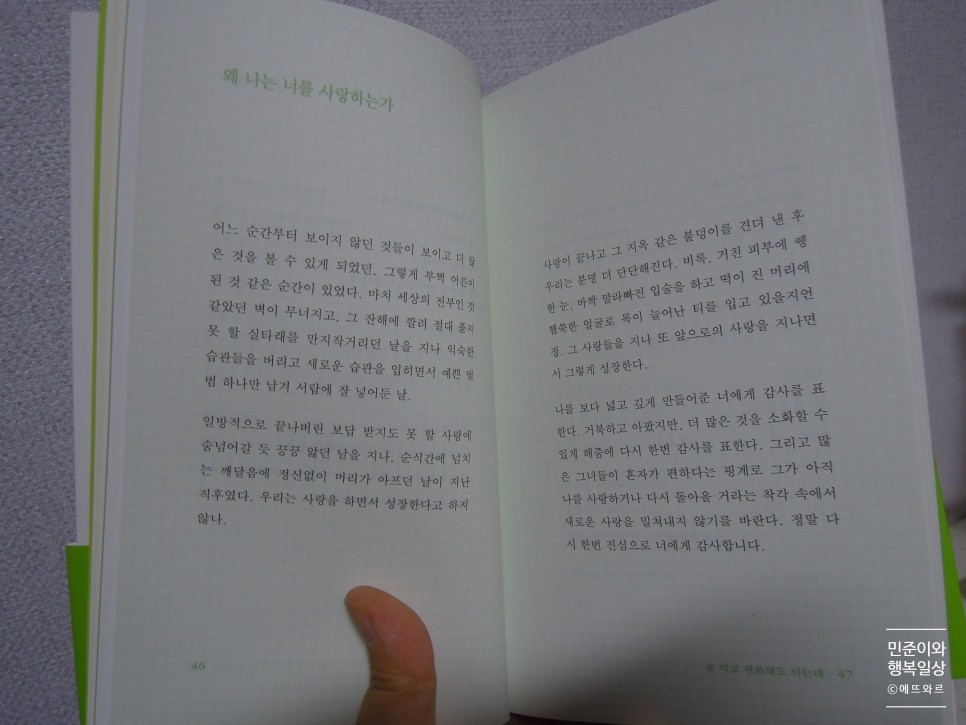 왜 나는 너를 사랑하는가
어느 순간부터 보이지 않던 것들이 보이고 더 많
은 것을 볼 수 있게 되었던, 그렇게 부쩍 어른이
된 것 같은 순간이 있었다. 마치 세상의 전부인 것
같았던 벽이 무너지고, 그 잔해에 깔려 절대 풀지
못 할 실타래를 만지작거리던 날을 지나 익숙한
습관들을 버리고 새로운 습관을 입히면서 예쁜 앨
범 하나만 남겨 서랍에 잘 넣어둔 날.
일방적으로 끝나버린 보답 받지도 못 할 사랑에
숨넘어갈 듯 끙끙 앓던 날을 지나, 순식간에 넘치
는 깨달음에 정신없이 머리가 아프던 날이 지난
직후였다. 우리는 사랑을 하면서 성장한다고 하지
않나.
46
사랑이 끝나고 그 지옥 같은 불덩이를 견뎌 낸 후
우리는 분명 더 단단해진다. 비록, 거친 피부에 펭
한 눈, 바짝 말라빠진 입술을 하고 떡이 진 머리에
헬쑥한 얼굴로 목이 늘어난 티를 입고 있을지언
정, 그 사랑들을 지나 또 앞으로의 사랑을 지나면
서 그렇게 성장한다.
나를 보다 넓고 깊게 만들어준 너에게 감사를 표
한다. 거북하고 아팠지만, 더 많은 것을 소화할 수
있게 해줌에 다시 한번 감사를 표한다. 그리고 많
은 그녀들이 혼자가 편하다는 핑계로 그가 아직
나를 사랑하거나 다시 돌아올 거라는 착각 속에서
새로운 사랑을 밀쳐내지 않기를 바란다. 정말 다
시 한번 진심으로 너에게 감사합니다.
술 먹고 전화해도 되는데 · 47
민준이와
행복일상
ⓒ에뜨와르